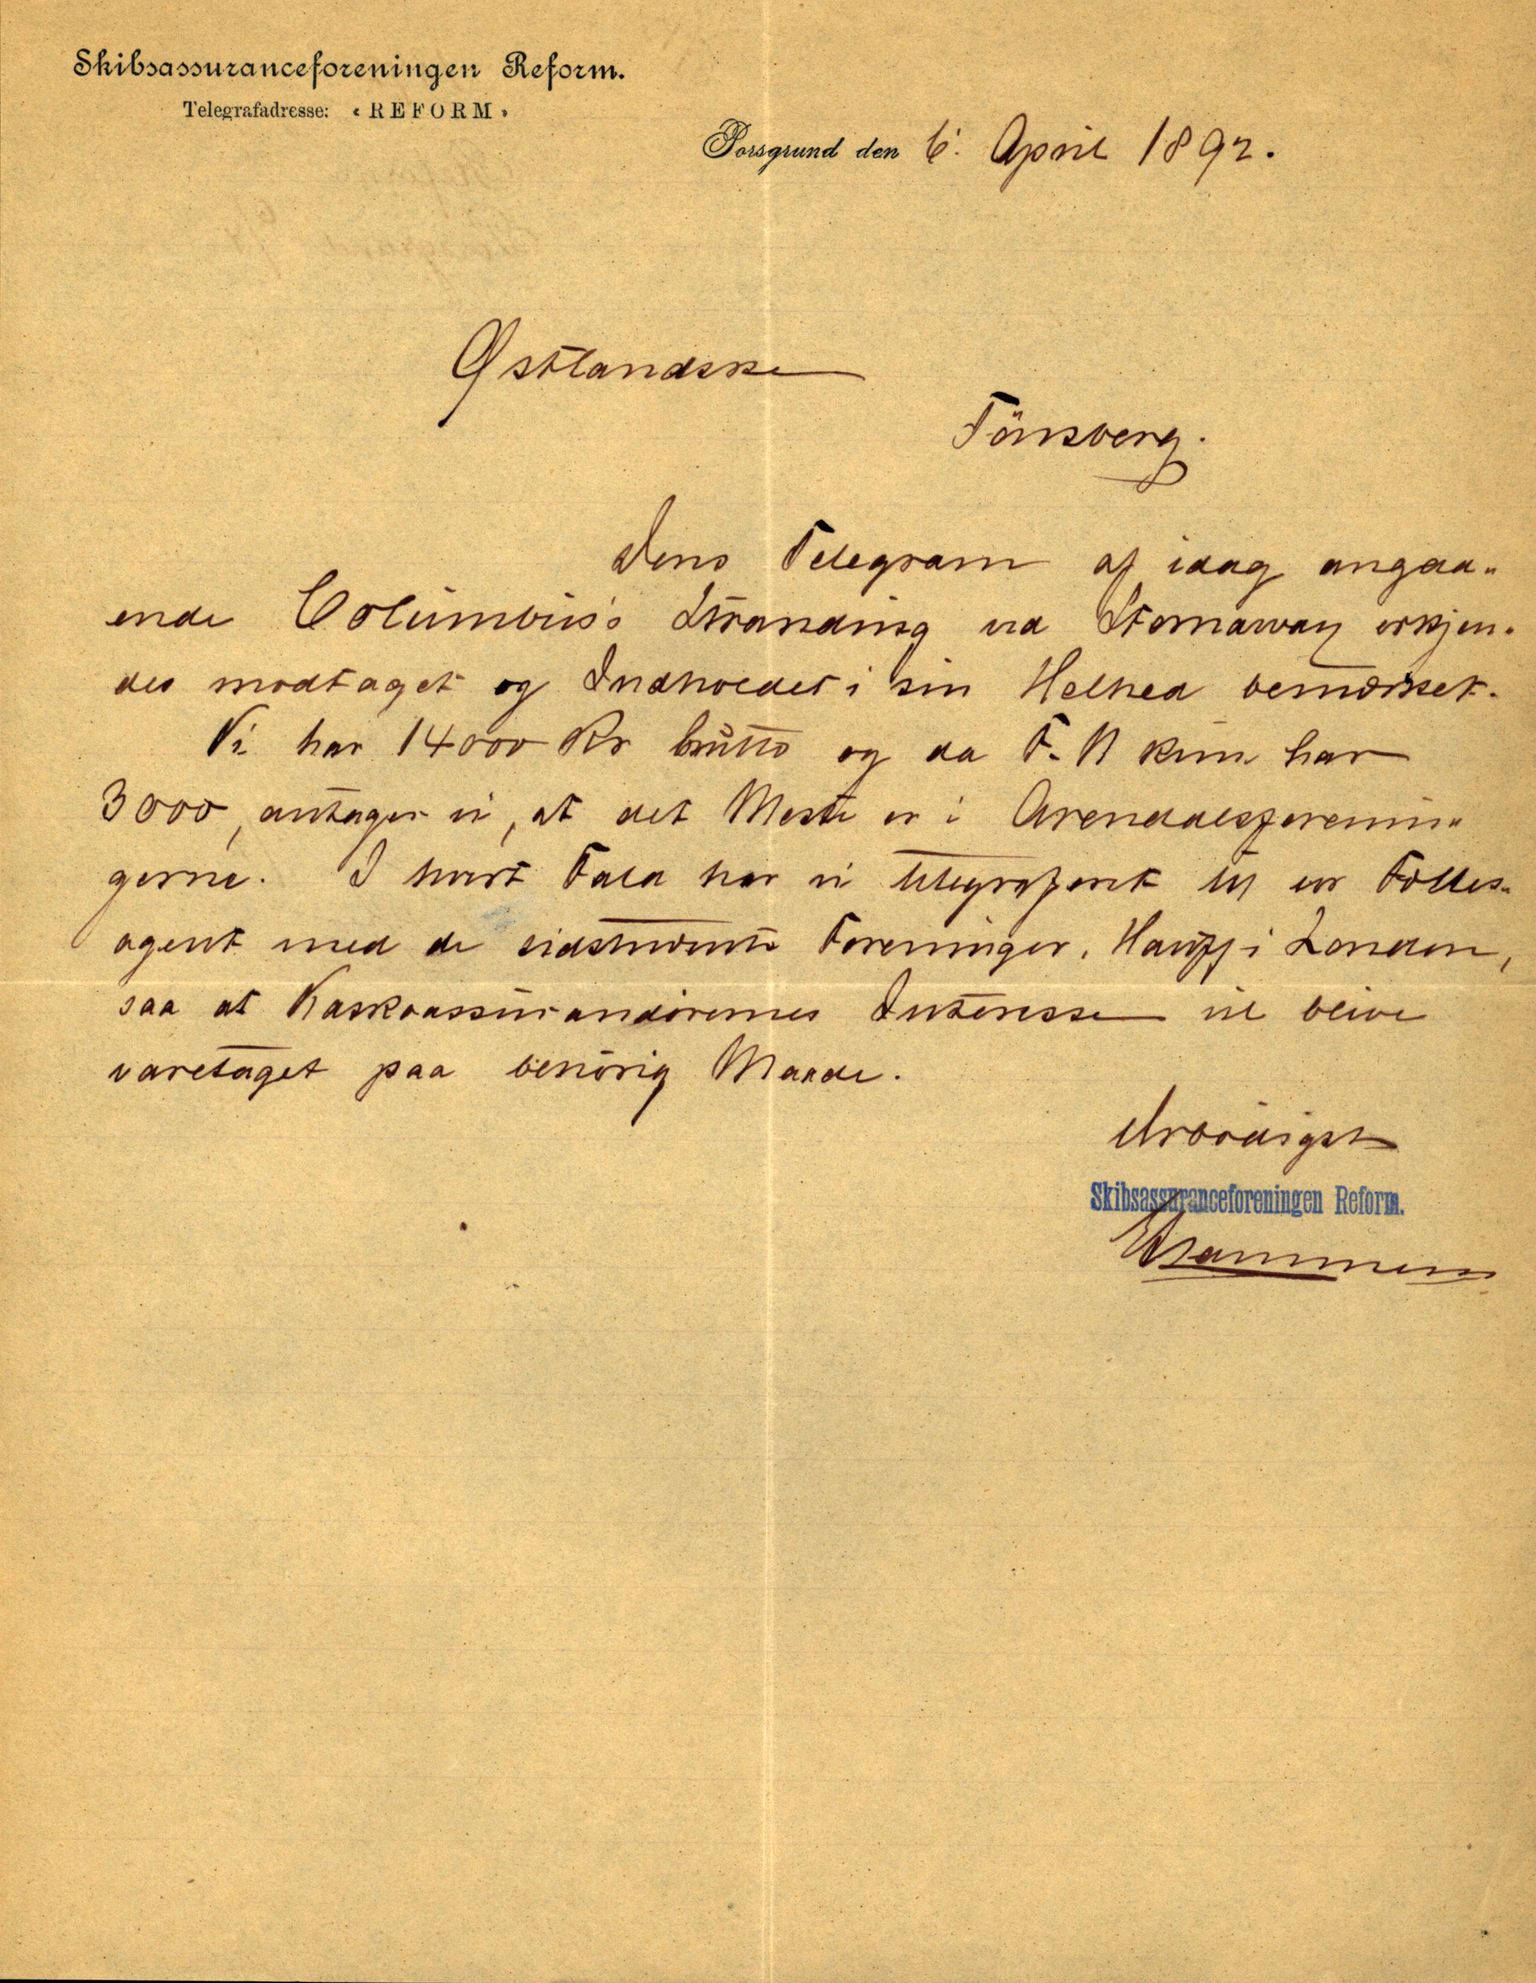 Skibsassuranceforeningen Reform.
Telegrafadresse: «REFORM»
Porsgrund den 6. April 1892.
Østlandske
Tönsberg.
Deres Telegram af idag angaa-
ende Columbus's Stranding ved Stornaway erkjen-
des modtaget og Indholdet i sin Helhed bemærket.
Vi har 14000 Kr brutto og da F. N kun har
3000, antager vi, at det Meste er i Arendalsforenin-
gerne. I hvert Fald har vi telegraferet til vor Fælles-
agent med de sidstnævnte Foreninger, Hauff i London,
saa at Kaskoassurandörernes Interesse vil blive
varetaget paa behörig Maade.
Ærbödigst
Skibsassuranceforeningen Reform.